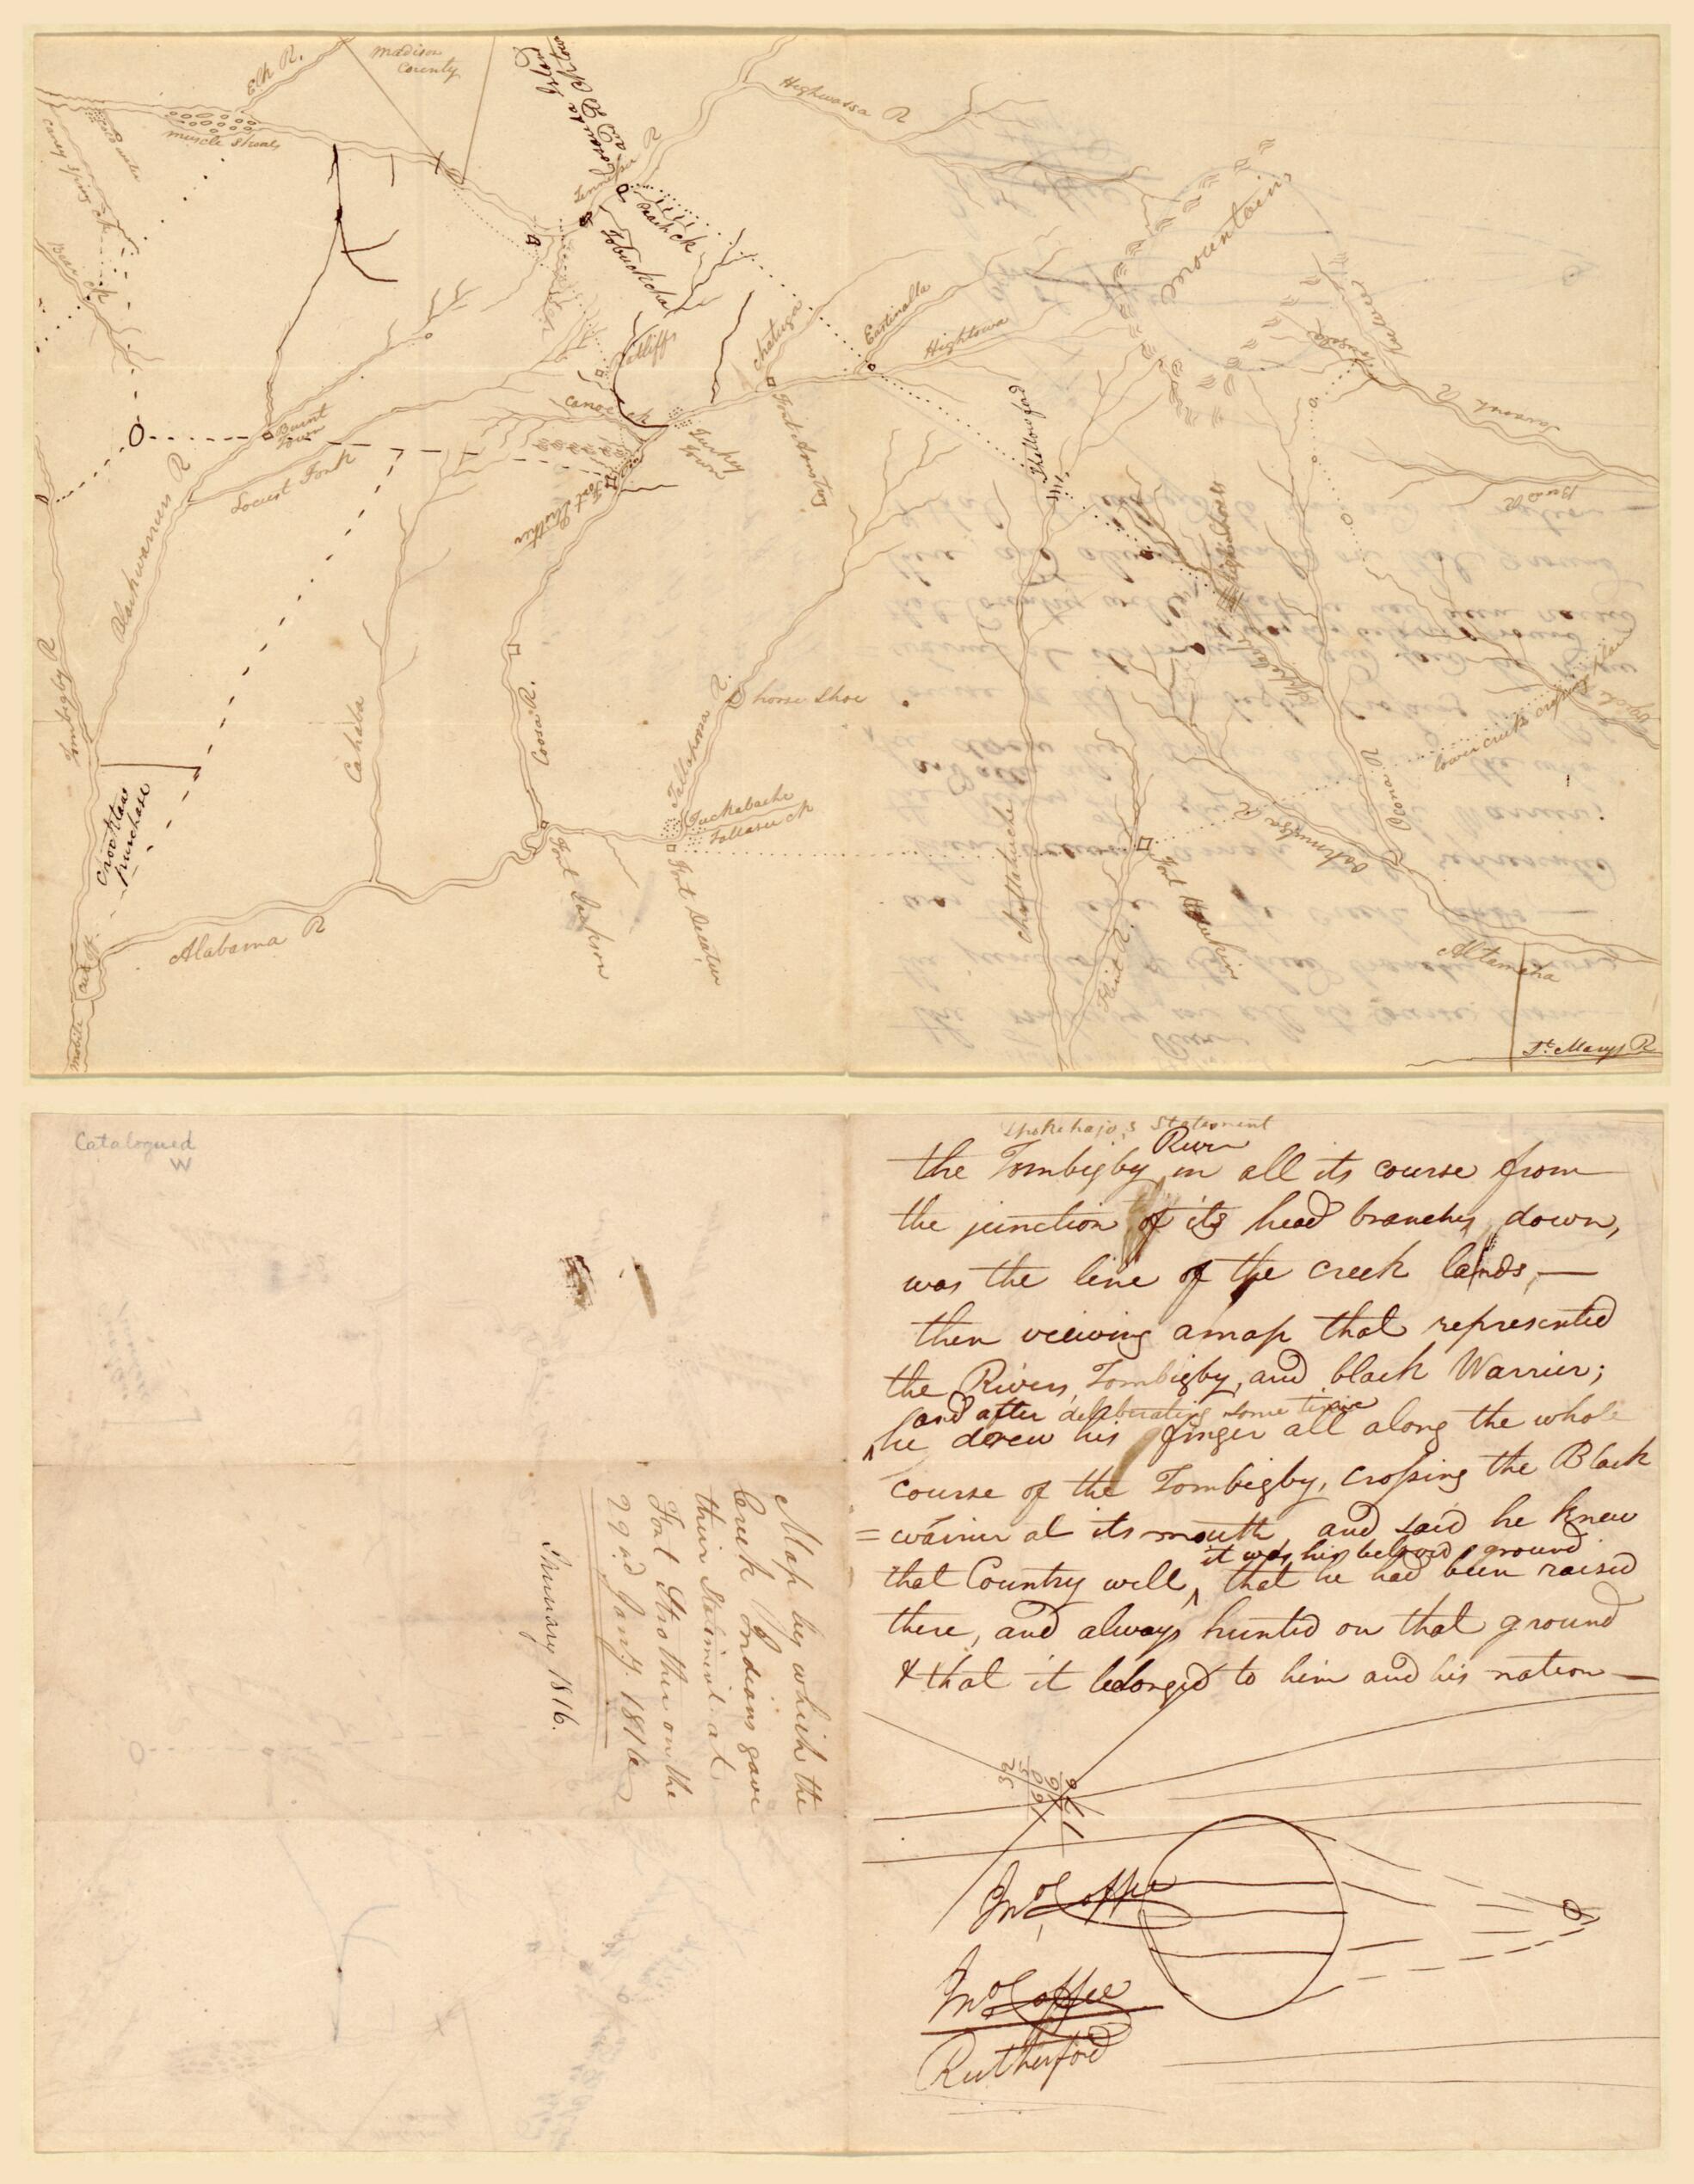 Elk R.
Madison
County
Highwassa R
muscle Shoals
Tennessee R
mountains
caney Spring Ck
Bear Ck
Ratliffs
Chatuga
Eastinalla
Hightowa
Canoe ck
Turkey
Town
Fort Armstrong
Shallowford
Savanah R
Burnt
Town
Locust Fork
Fort Strother
Black warrior R
Highshoals
Tombigby R
Cahaba
Coosa R.
Tallapoosa R
horse Shoe
Tuckabache
Tallasee ck
Chocktaw
purchase
Fort Jackson
Fort Decatur
Alabama R
Chattahuche
Flint R.
Fort Hawkins
Oakmulga R
Oconа R
Altamaha
St. Marys R
Mobile
Catalogued
W
Map by which the
Creek Indians gave
their Statement at
Fort Strother on the
22nd Jany. 1816
January 1816.
Statement
the Tombigby River in all its course from
the junction of its head branches, down,
was the line of the creek lands, —
then veiwing a map that represented
the Rivers, Tombigby, and black Warrior;
and after deliberating some time
he drew his finger all along the whole
course of the Tombigby, crossing the Black
= warrior at its mouth, and said he knew
it was his beloved ground
that Country well, that he had been raised
there, and always hunted on that ground
& that it belonged to him and his nation —
Jno Coffee
Jno Coffee
Rutherford